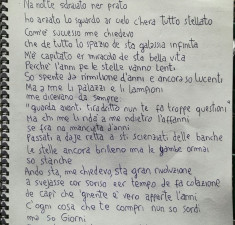 Na notte sdraiato ner prato
ho arzato lo sguardo ar celo c'hera tutto stellato
Com'è successo me chiedevo
che de tutto lo spazio de sta galassia infinita
M'è capitato er miracolo de sta bella vita
Perché l'anni pe le stelle vanno lenti
So spente da rimilione d'anni e ancora so lucenti
Ma a me li palazzi e li lampioni
me dicevano da sempre:
"guarda avanti, tira dritto nun te fa troppe questioni"
Ma chi me li ridà a me ndietro l'affanni
se dra na manciata d'anni
Passati a daje retta a sti scienziati delle banche
le stelle ancora brilleno ma le gambe ormai
so stanche
Ando sta, me chiedevo, sta gran rivoluzione
a svejasse cor soriso er tempo de fa colazione
de capì che gnente è vero apparte l'anni
C'ogni cosa che te compri nun so sordi
ma so Giorni